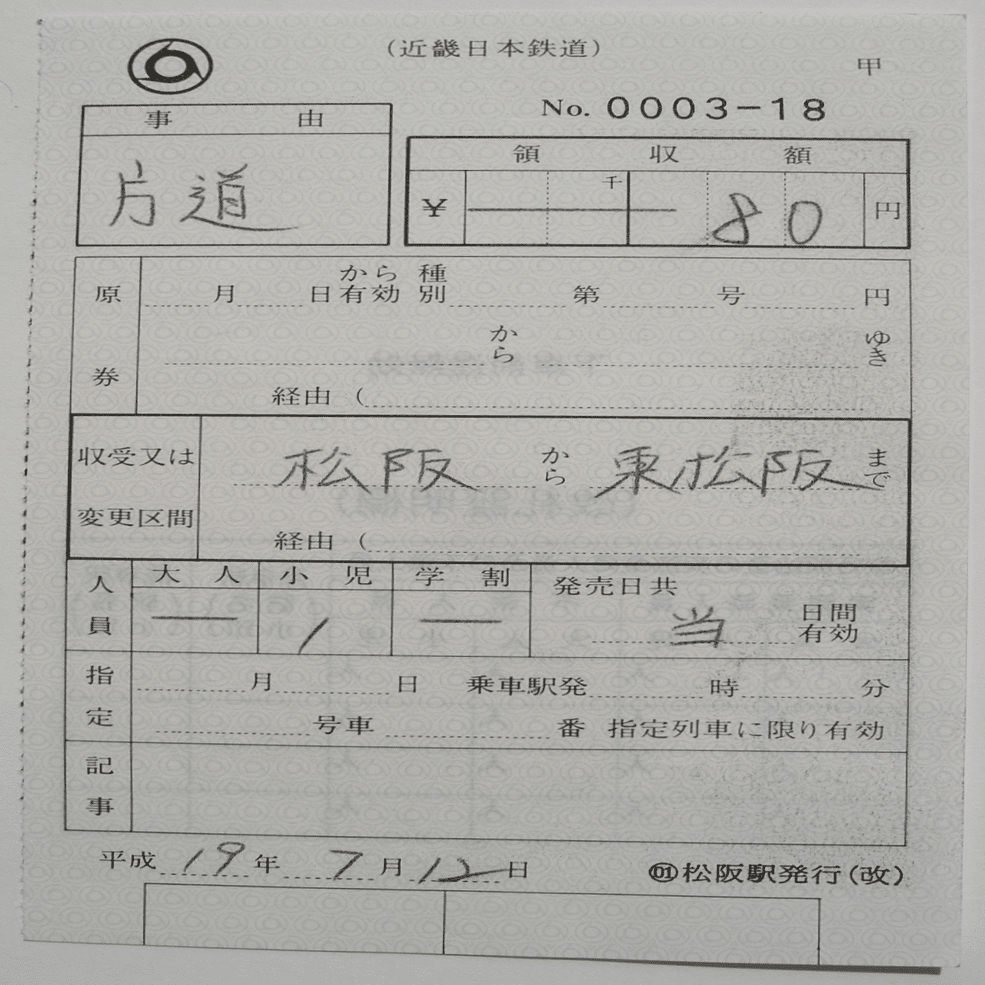 (近畿日本鉄道)
甲
No. 0003-18
事由
片道
領収額
千
¥ 80 円
原券
から 種
月 日有効 別 第 号 円
から ゆき
経由(
収受又は
変更区間
松阪 から 東松阪 まで
経由(
人員
大人 小児 学割
― 1 ―
発売日共
当 日間有効
指定
月 日 乗車駅発 時 分
号車 番 指定列車に限り有効
記事
平成 19 年 7 月 12 日
01松阪駅発行(改)